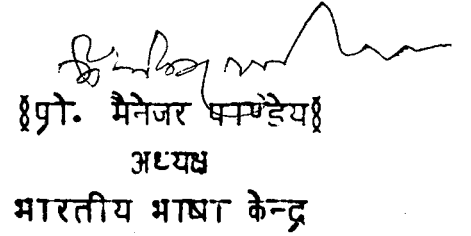 §प्रो. मैनेजर पाण्डेय§
अध्यक्ष
भारतीय भाषा केन्द्र